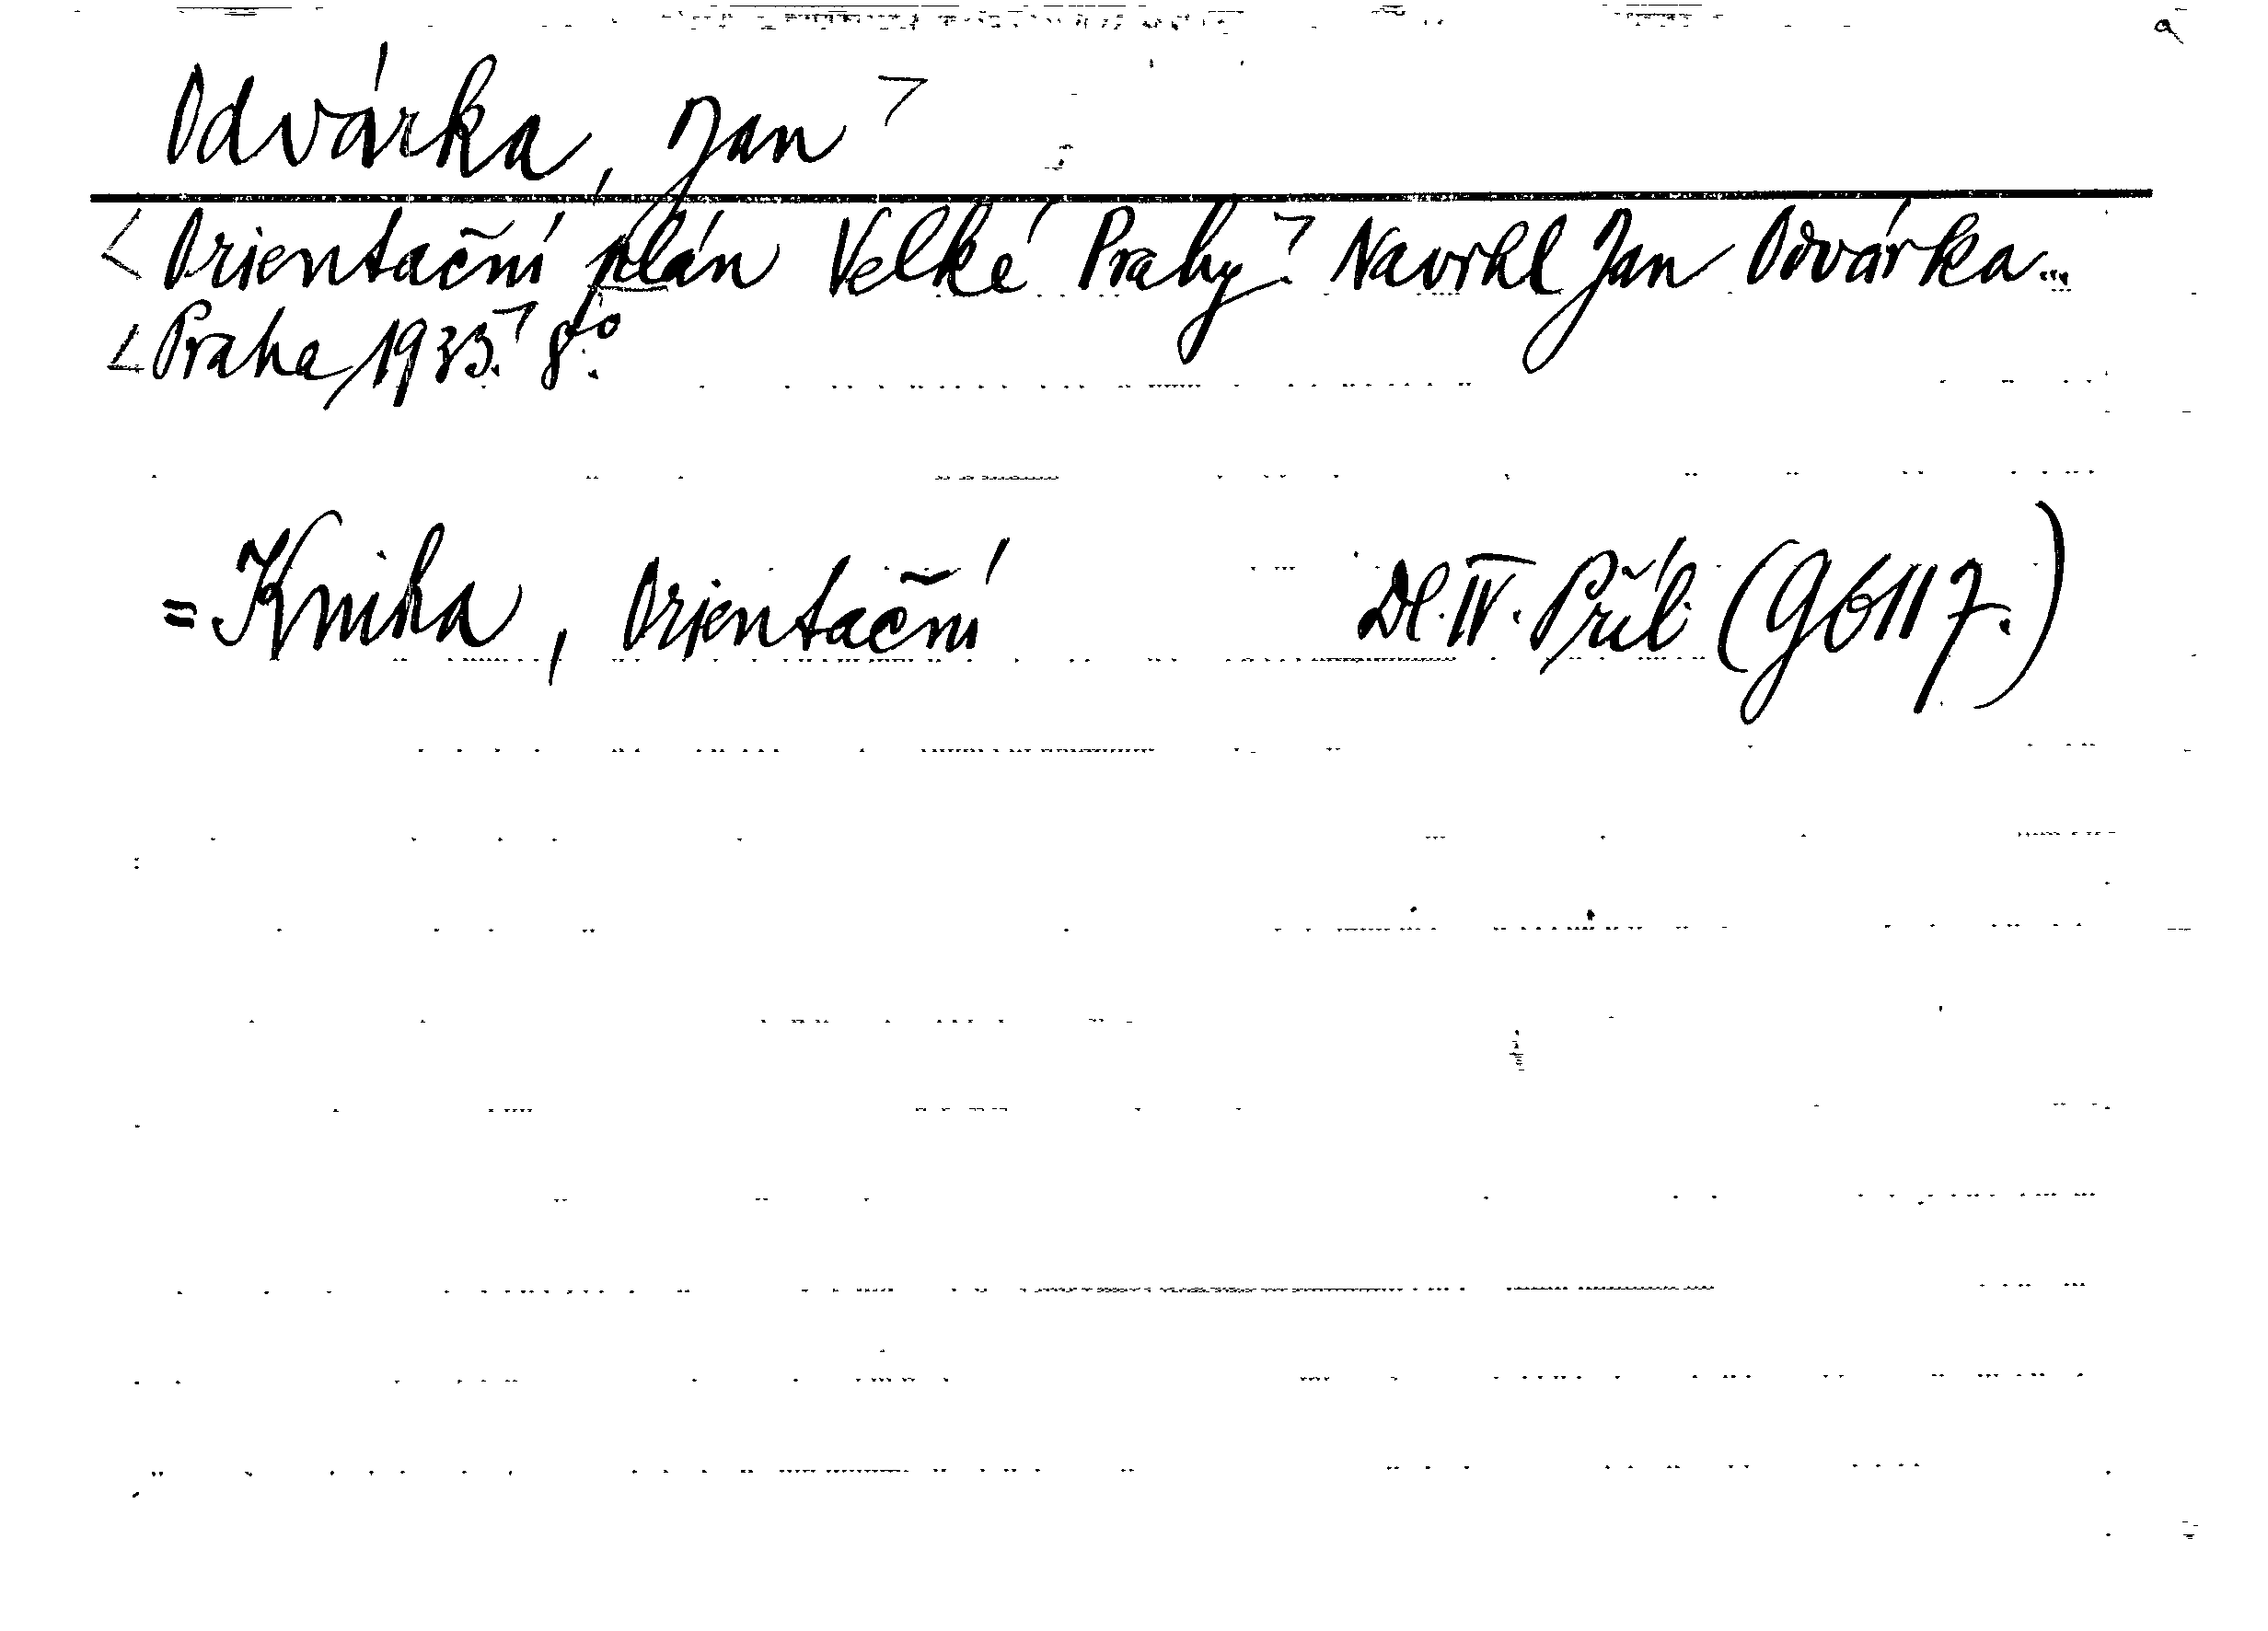 Odvárka, Jan
Orientační plán Velké Prahy. Navrhl Jan Odvárka...
Praha, 1933. 8°.
= Kniha, Orientační Dl. IV. Příl. (96117.)